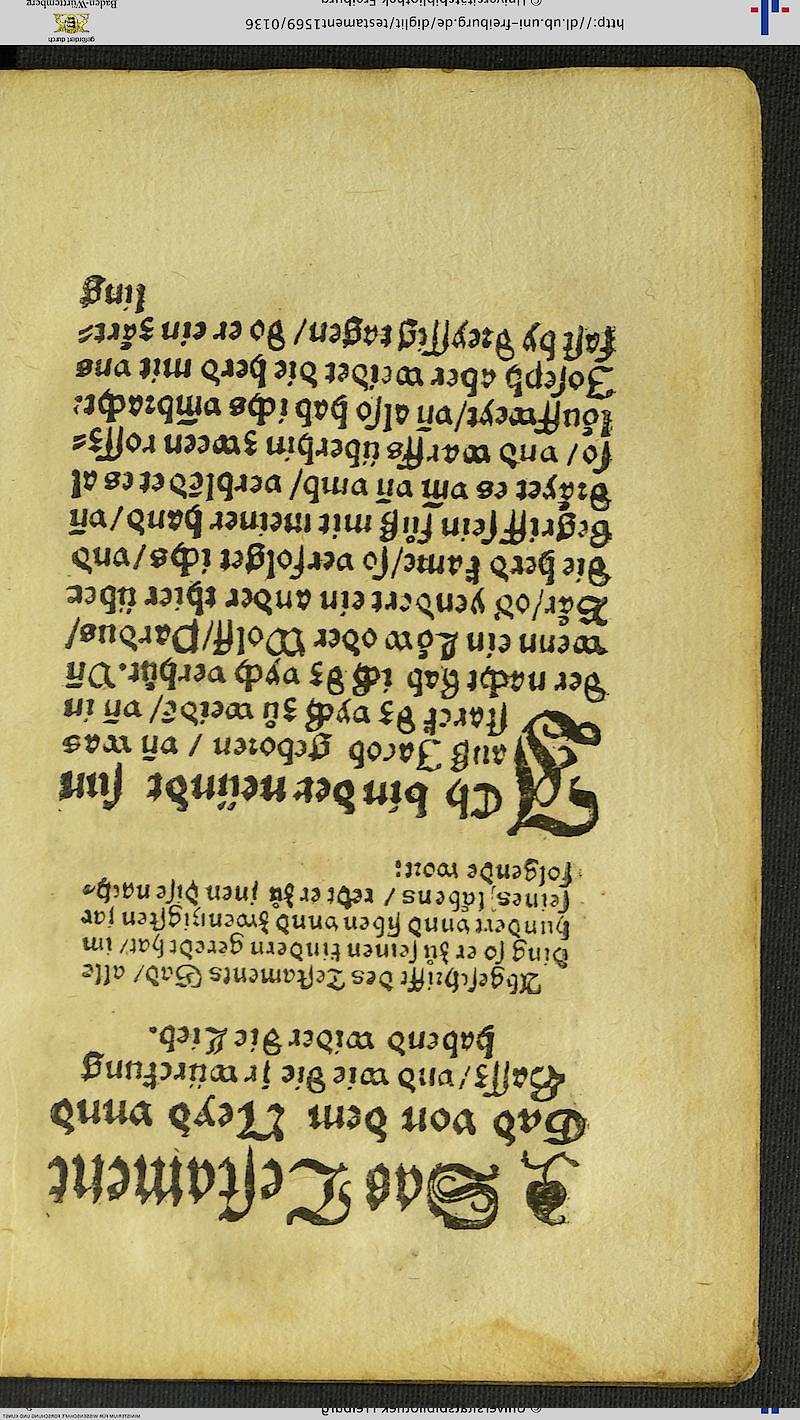 Das Testament
Gad von dem Neyd vnnd
Hassz/vnd wie die jr würckung
habend wider die Lieb.
Abgeschrifft des Testaments Gad/ alle
ding so er zů seinen kindern geredet hat/ im
hundert vnnd siben vnnd zwentzigsten jar
seines läbens / redt er zů jnen dise nach-
folgende wort:
ICh bin der neündt sun
auß Jacob geboren / vñ was
starck dz vych zů weidē/ vñ in
der nacht hab ich dz vych verhůt. Vñ
wenn ein Löw oder Wolff/Pardus/
Bär/od yendert ein ander thier über
die herd kame/so verfolget ichs/vnd
begriff sein fůß mit meiner hand/vñ
träyet es vm vñ vmb/ verblēdet es al
so / vnd warffs überhin zween rossz-
löuff weyt/vñ also hab ichs vmbracht:
Joseph aber weidet die herd mit vns
fast by dreyssig tagen/ do er ein zärt-
ling
http://dl.ub.uni-freiburg.de/diglit/testament1569/0136
© Universitätsbibliothek Freiburg
gefördert durch
Baden-Württemberg
MINISTERIUM FÜR WISSENSCHAFT, FORSCHUNG UND KUNST
© Universitätsbibliothek Freiburg